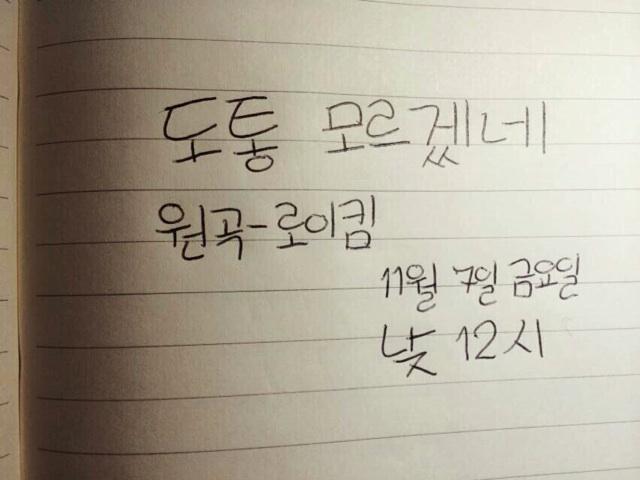 도통 모르겠네
원곡-로이킴
11월 7일 금요일
낮 12시